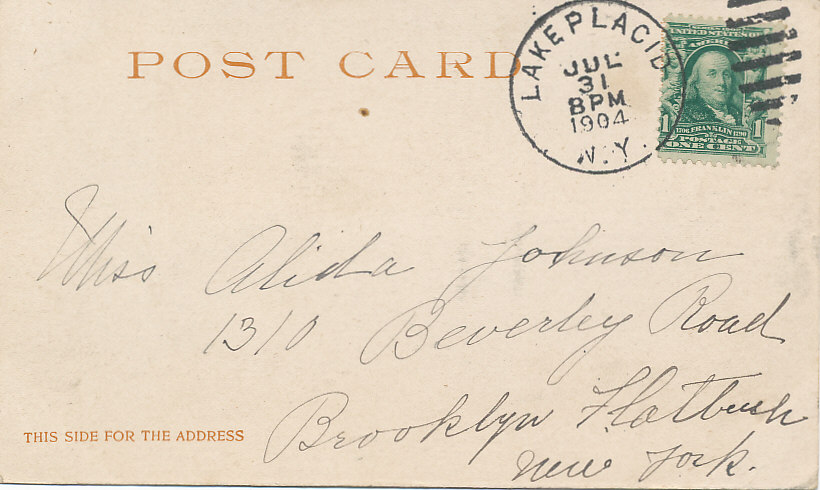 POST CARD
LAKE PLACID
JUL
31
8PM
1904
N.Y.
UNITED STATES OF
AMERICA
1 1706 FRANKLIN 1790 1
POSTAGE
ONE CENT
Miss Alida Johnson
1310 Beverley Road
Brooklyn Flatbush
New York.
THIS SIDE FOR THE ADDRESS